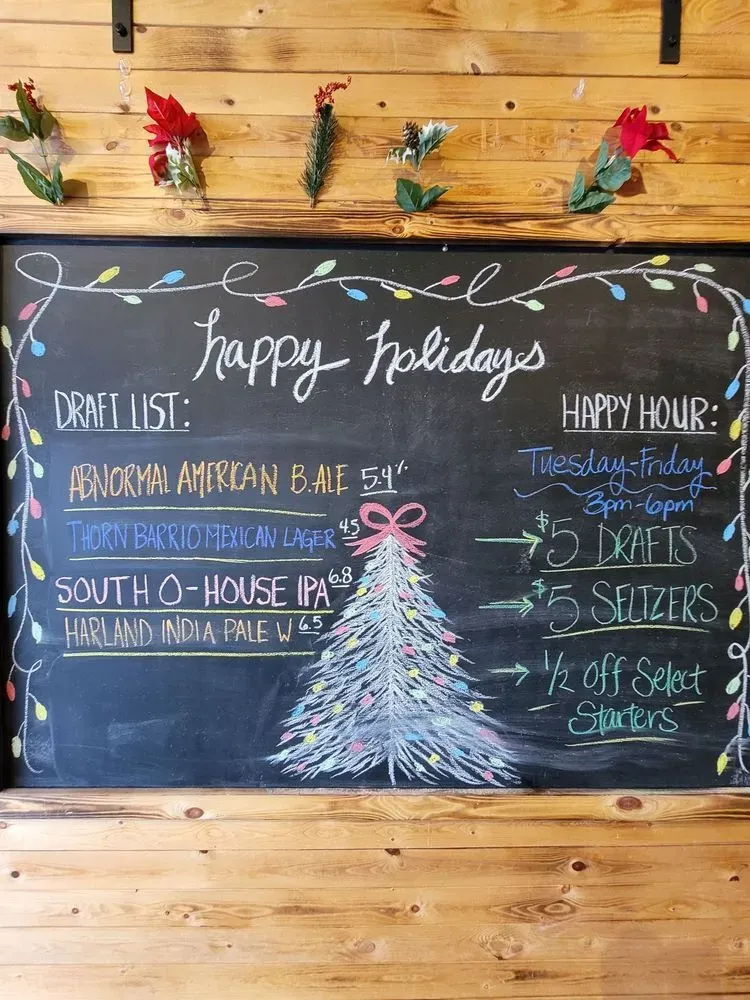 happy holidays
DRAFT LIST:
ABNORMAL AMERICAN B.ALE 5.4%
THORN BARRIO MEXICAN LAGER 4.5
SOUTH O-HOUSE IPA 6.8
HARLAND INDIA PALE W 6.5
HAPPY HOUR:
Tuesday-Friday
3pm-6pm
→ $5 DRAFTS
→ $5 SELTZERS
→ 1/2 Off Select
Starters